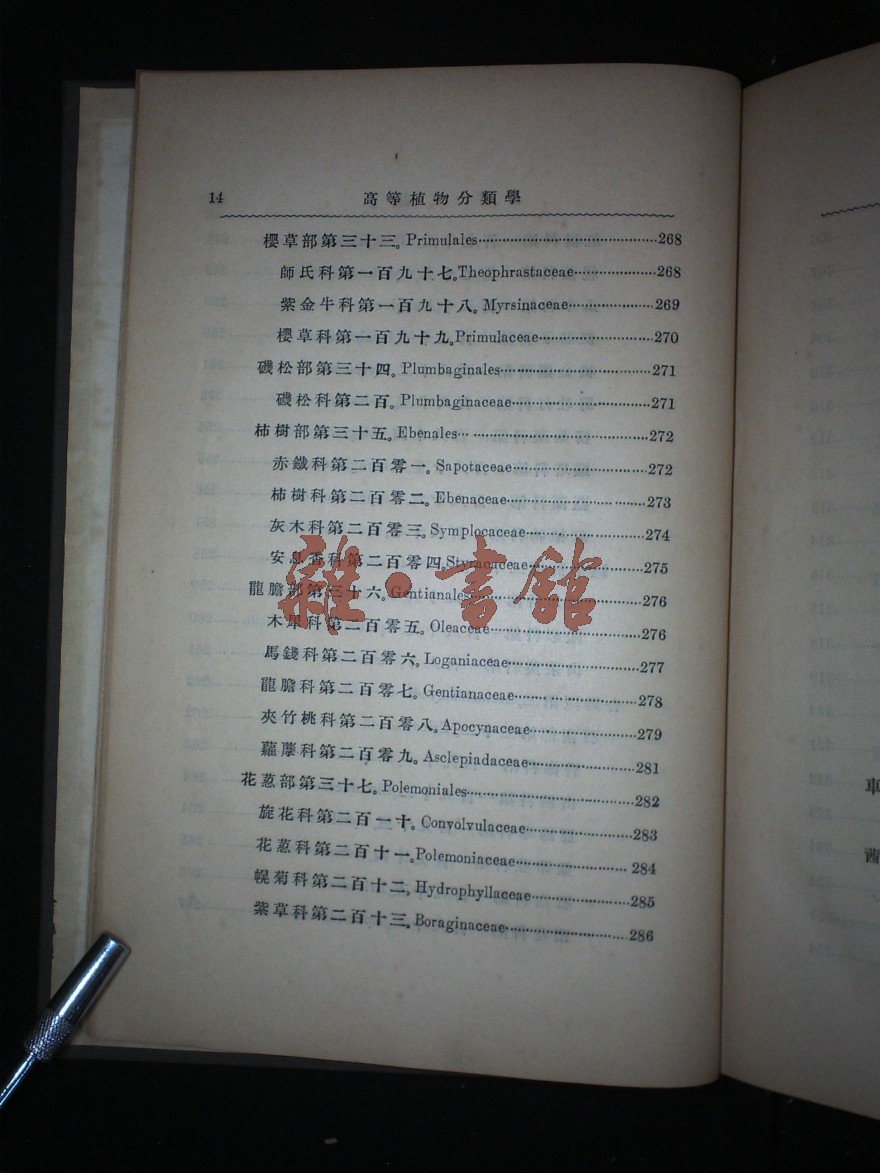 14 高等植物分類學
櫻草部第三十三。Primulales 268
師氏科第一百九十七。Theophrastaceae 268
紫金牛科第一百九十八。Myrsinaceae 269
櫻草科第一百九十九。Primulaceae 270
磯松部第三十四。Plumbaginales 271
磯松科第二百。Plumbaginaceae 271
柿樹部第三十五。Ebenales 272
赤鐵科第二百零一。Sapotaceae 272
柿樹科第二百零二。Ebenaceae 273
灰木科第二百零三。Symplocaceae 274
安息香科第二百零四。Styracaceae 275
龍膽部第三十六。Gentianales 276
木犀科第二百零五。Oleaceae 276
馬錢科第二百零六。Loganiaceae 277
龍膽科第二百零七。Gentianaceae 278
夾竹桃科第二百零八。Apocynaceae 279
蘿藦科第二百零九。Asclepiadaceae 281
花葱部第三十七。Polemoniales 282
旋花科第二百一十。Convolvulaceae 283
花葱科第二百十一。Polemoniaceae 284
幌菊科第二百十二。Hydrophyllaceae 285
紫草科第二百十三。Boraginaceae 286
雜·書館
車
茜